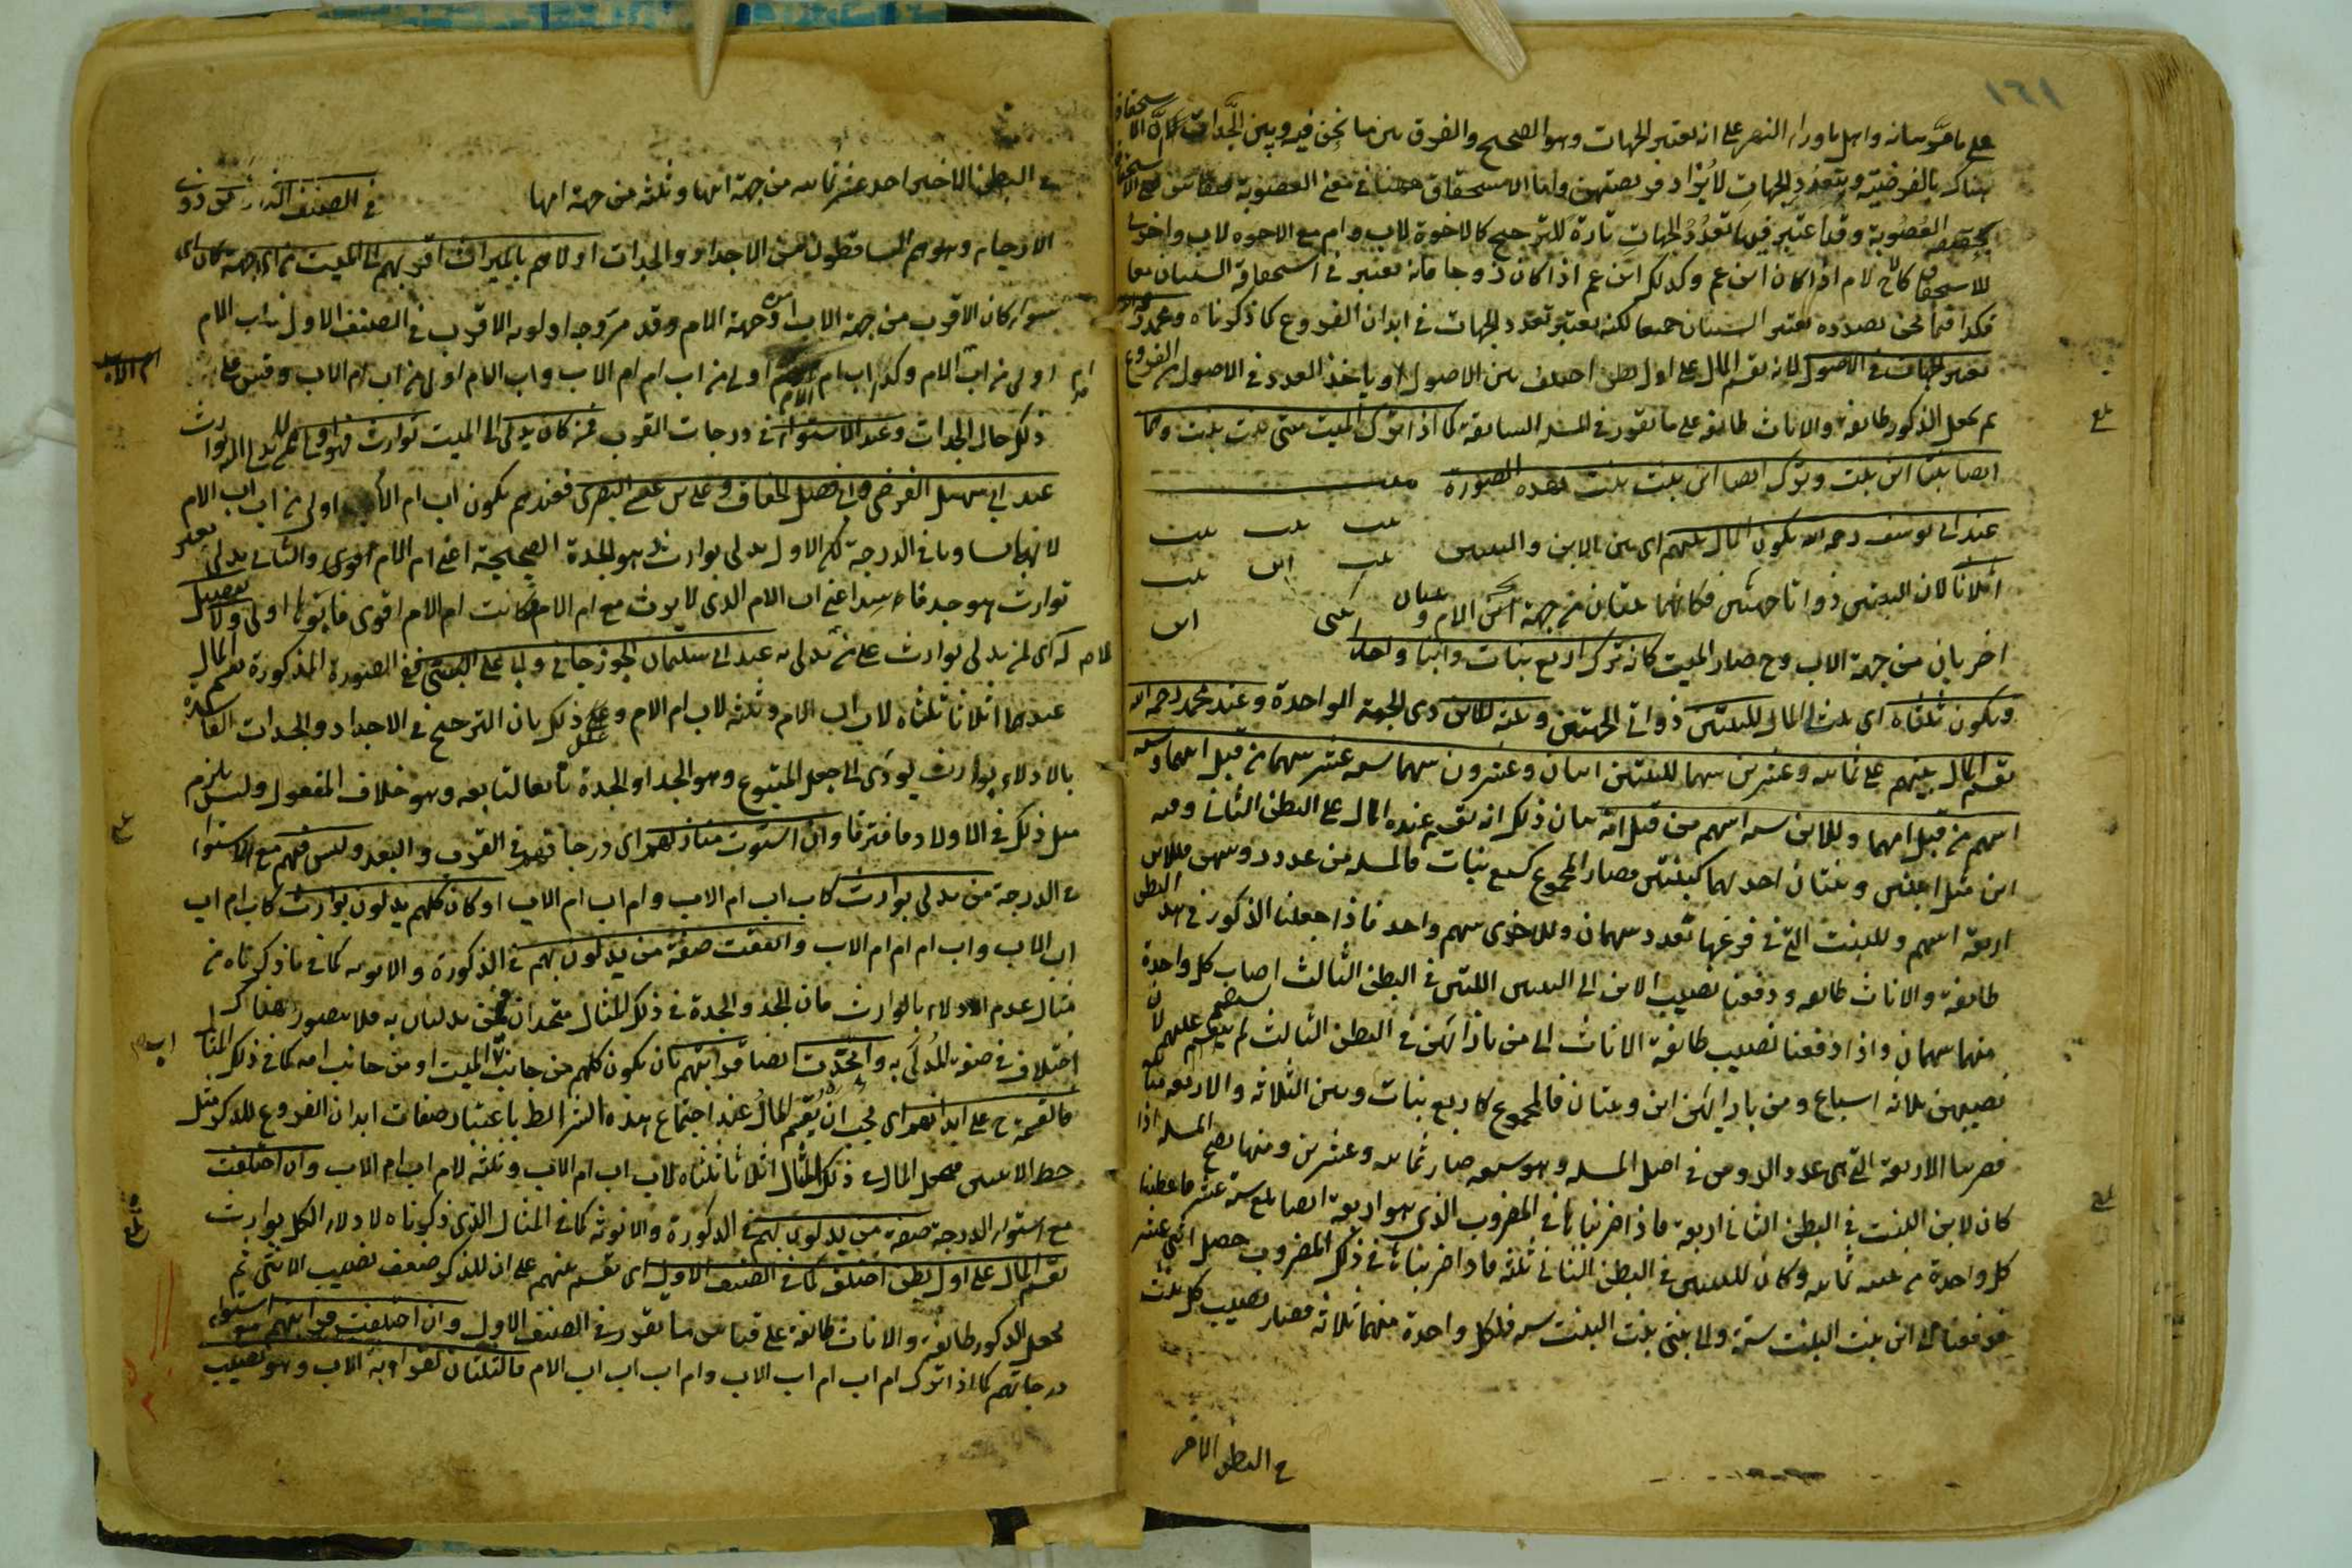 ١٦١
على ما مر بيانه واهل ما وراء النهر على انه يعتبر الجهات وهو الصحيح والفرق بين ما نحن فيه وبين الجدات ان الاستحقاق
هناك بالفرضية وبتعدد الجهات لا يزداد فرضيتهن واما الاستحقاق ههنا في معنى العصوبة فيقاس الاستحقاق
بحقيقة العصوبة وقد اعتبر فيها تعدد الجهات تارة للترجيح كالاخوة لاب وام مع الاخوة لاب واخرى
للاستحقاق كالاخ لام اذا كان ابن عم وكذلك ابن عم اذا كان زوجا فانه يعتبر في استحقاقه السببان معا
فكذا فيما نحن بصدده يعتبر السببان جميعا لكنه يعتبر تعدد الجهات في ابدان الفروع كما ذكرناه ومحمد
يعتبر الجهات في الاصول لانه يقسم المال على اول بطن اختلف من الاصول وياخذ العدد في الاصول من الفروع
ثم يجعل الذكور طائفة والاناث طائفة على ما تقرر في المسئلة السابقة كما اذا ترك الميت بنتى بنت بنت وهما
ايضا بنتا ابن بنت وترك ايضا ابن بنت بنت بهذه الصورة ميت
بنت بنت بنت
عند ابى يوسف رحمه الله يكون المال بينهم اى بين الابن والبنتين
بنت ابن بنت
اثلاثا لان البنتين ذواتا جهتين فكانهما بنتان من جهة الام و بنتان
بنتى ابن
اخريان من جهة الاب وح صار الميت كانه ترك اربع بنات وابنا واحدا
ويكون ثلثاه اى ثلثى المال للبنتين ذواتى الجهتين وثلثه للابن ذى الجهة الواحدة وعند محمد رحمه الله
يقسم المال بينهم على ثمانية وعشرين سهما للبنتين اثنان وعشرون سهما ستة عشر سهما من قبل ابيهما وستة
اسهم من قبل امهما وللابن ستة اسهم من قبل امه بيان ذلك انه يقسم عنده المال على البطن الثانى وفيه
ابن مثل ابنين وبنتان احدهما كبنتين فصار المجموع كسبع بنات فالمسئلة من عدد رؤسهن فللابن
اربعة اسهم وللبنت التى في فرعها تعدد سهمان وللاخرى سهم واحد فاذا جعلنا الذكور في هذا البطن
طائفة والاناث طائفة ودفعنا نصيب الابن الى البنتين اللتين في البطن الثالث اصاب كل واحدة
منهما سهمان واذا دفعنا نصيب طائفة الاناث الى من بازائهن في البطن الثالث لم ينقسم عليهم لان
نصيبهن ثلاثة اسباع ومن بازائهن ابن وبنتان فالمجموع كاربع بنات وبين الثلاثة والاربعة مباينة
فضربنا الاربعة التى هى عدد الرؤس في اصل المسئلة وهو سبعة صار ثمانية وعشرين ومنها تصح المسئلة اذ
كان لابن البنت في البطن الثانى اربعة فاذا ضربناها في المضروب الذى هو اربعة ايضا بلغ ستة عشر فاعطينا
كل واحدة من بنتيه ثمانية وكان للبنتين في البطن الثانى ثلثة فاذا ضربناها في ذلك المضروب حصل اثنى عشر
فدفعنا الى ابن بنت البنت ستة والى بنتى بنت البنت ستة فلكل واحدة منهما ثلاثة فصار نصيب كل بنت
في البطن الاخر
في البطن الاخير احد عشر ثمانية من جهة ابيها وثلثة من جهة امها في الصنف الثانى من ذوى
الارحام وهم الساقطون من الاجداد والجدات اولاهم بالميراث اقربهم الى الميت من اى جهة كان اى
سواء كان الاقرب من جهة الاب او جهة الام وقد مر وجه اولوية الاقرب في الصنف الاول فاب الام
اولى من اب ام الام وكذا اب ام الام اولى من اب ام ام الاب واب الام اولى من اب ام الاب وقس على
ذلك حال الجدات وعند الاستواء في درجات القرب فمن كان يدلى الى الميت بوارث فهو اولى ممن لا يدلى اليه بوارث
عند ابى سهل الفرضى وابى فضل الخفاف وعلى بن عيسى البصرى فعندهم يكون اب ام الام اولى من اب اب الام
لانهما تساويا في الدرجة لكن الاول يدلى بوارث هو الجدة الصحيحة اعنى ام الام والثانى يدلى بغير
بوارث هو جد فاسد اعنى اب الام الذى لا يرث مع ام الام فكانت ام الام اقوى فابوها اولى ولا تفضيل
له اى لمن يدلى بوارث على من يدلى به عند ابى سليمان الجوزجانى وابى على البستى ففى الصورة المذكورة يقسم المال
عندهما اثلاثا ثلثاه لاب اب الام وثلثه لاب ام الام وعلل ذلك بان الترجيح في الاجداد والجدات الفاسدة
بالادلاء بوارث يؤدى الى جعل المتبوع وهو الجد او الجدة تابعا لتابعه وهو خلاف المعقول وليس يلزم
مثل ذلك في الاولاد فافترقا وان استوت منازلهم اى درجاتهم في القرب والبعد وليس فيهم مع الاستواء
في الدرجة من يدلى بوارث كاب اب ام الاب وام اب ام الاب او كان كلهم يدلون بوارث كاب ام اب
اب الاب واب ام ام ام الاب واتفقت صفة من يدلون بهم في الذكورة والانوثة كما في ما ذكرناه من
مثال عدم الادلاء بالوارث فان الجد والجدة في ذلك المثال متحدان في من يدليان به فلا يتصور هناك
اختلاف في صفة المدلى به واتحدت ايضا قرابتهم بان يكون كلهم من جانب اب الميت او من جانب امه كما في ذلك المثال
فالقسمة ح على ابدانهم اى يجب ان يقسم المال عند اجتماع هذه الشرائط باعتبار صفات ابدان الفروع للذكر مثل
حظ الانثيين فيجعل المال في ذلك المثال اثلاثا ثلثاه لاب اب ام الاب وثلثه لام اب ام الاب وان اختلفت
مع استواء الدرجة صفة من يدلون بهم في الذكورة والانوثة كما في المثال الذى ذكرناه لادلاء الكل بوارث
يقسم المال على اول بطن اختلف كما في الصنف الاول اى يقسم بينهم على ان للذكر ضعف نصيب الانثى ثم
يجعل الذكور طائفة والاناث طائفة على قياس ما تقرر في الصنف الاول وان اختلفت قرابتهم مع استواء
درجاتهم كما اذا ترك ام اب ام اب الاب وام اب اب اب الام فالثلثان لقرابة الاب وهو نصيب